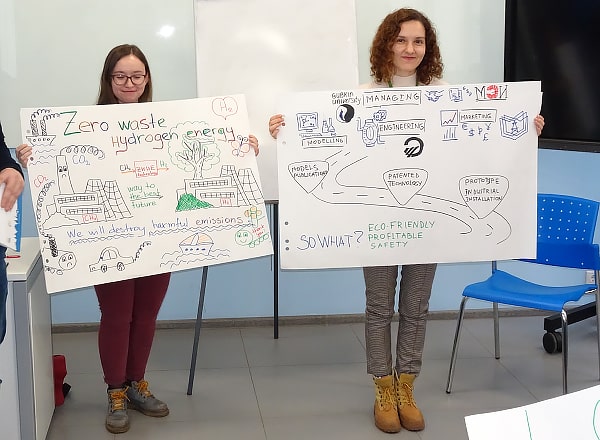 Zero waste
Hydrogen energy
CO₂
CO₂
CH₄
H₂
way to
the best
future
CH₄
CH₄
We will destroy harmful emissions
GUBKIN
UNIVERSITY
MANAGING
MODELLING
ENGINEERING
MARKETING
€ $ £
MODELS,
PUBLICATIONS
PATENTED
TECHNOLOGY
PROTOTYPE
INDUSTRIAL
INSTALLATION
SO WHAT?
ECO-FRIENDLY
PROFITABLE
SAFETY